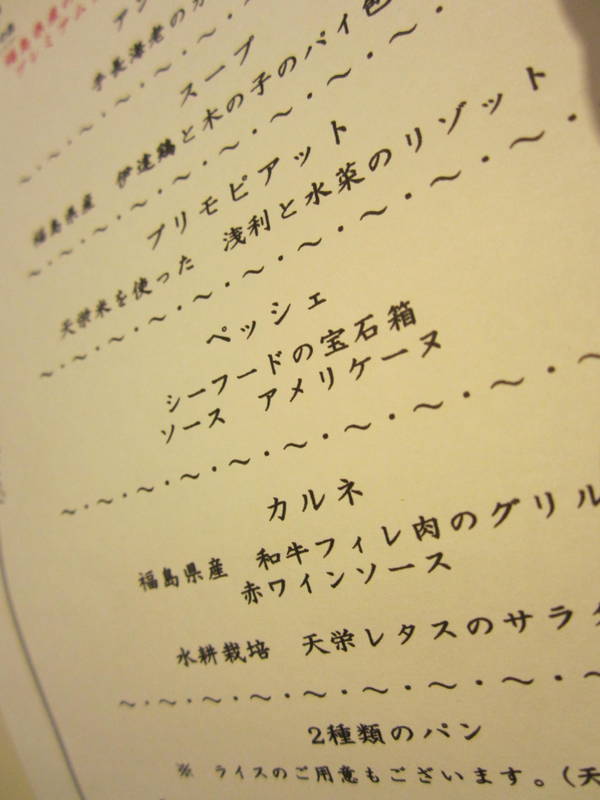 福島県産の
プレミアム
アン
手長海老のカ
～・～・～・～・～・～・～
スープ
福島県産 伊達鶏と木の子のパイ包
～・～・～・～・～・～・～・～・～
プリモピアット
天栄米を使った 浅利と水菜のリゾット
～・～・～・～・～・～・～・～・～・～・
ペッシェ
シーフードの宝石箱
ソース アメリケーヌ
～・～・～・～・～・～・～・～・～・～
カルネ
福島県産 和牛フィレ肉のグリル
赤ワインソース
水耕栽培 天栄レタスのサラダ
～・～・～・～・～・～・～・～・～・～
2種類のパン
※ ライスのご用意もございます。(天